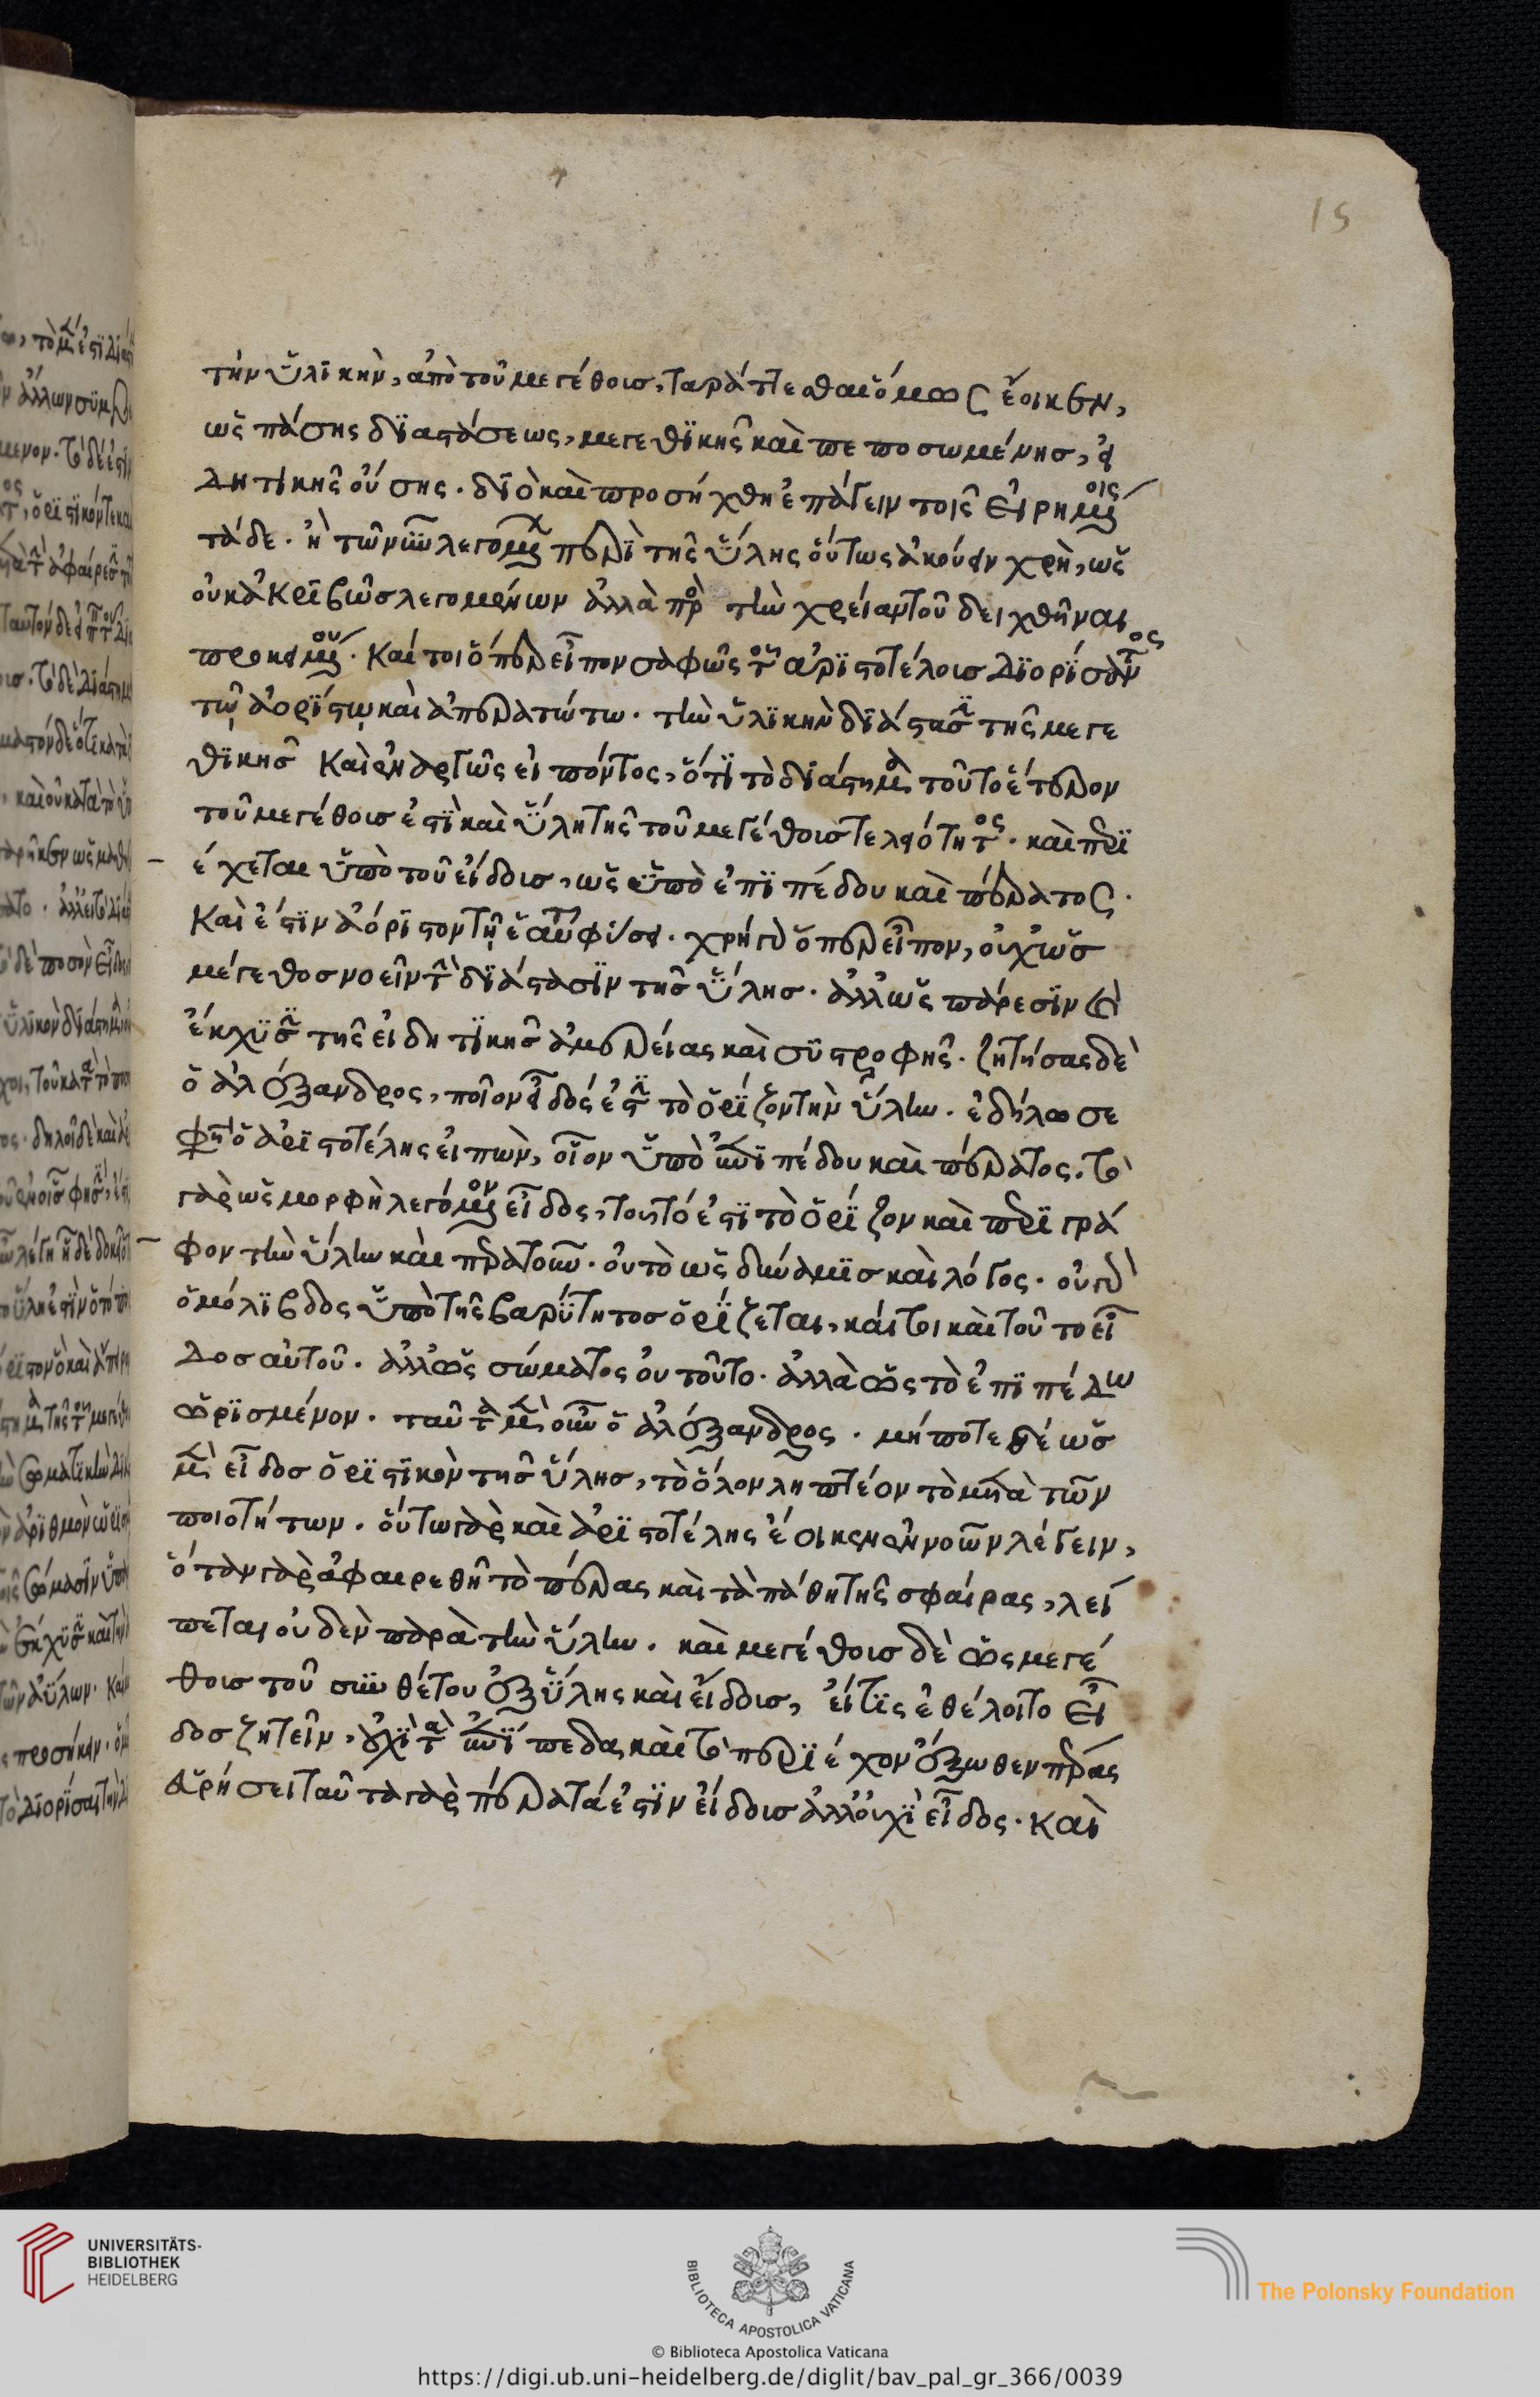 15
τὴν ὑλικὴν, ἀπὸ τοῦ μεγέθους, ταράττεσθαι ὅμως ἔοικεν,
ὡς πάσης διαστάσεως, μεγεθικῆς καὶ πεποσωμένης, εἰ
δητικῆς οὔσης. διὸ καὶ προσήχθη ἐπάγειν τοῖς εἰρημένοις
τάδε. ἢ τῶν λεγομένων περὶ τῆς ὕλης οὕτως ἀκούειν χρὴ, ὡς
οὐκ ἀκριβῶς λεγομένων ἀλλὰ πρὸς τὴν χρείαν τοῦ δειχθῆναι
προκειμένου. καίτοι ὅπερ εἶπον σαφῶς τοῦ ἀριστοτέλους διορίσαντος
τῷ ἀορίστῳ καὶ ἀπερατώτω. τὴν ὑλικὴν διάστασιν τῆς μεγε
θικῆς καὶ ἐναργῶς εἰπόντος, ὅτι τὸ διάστημα τοῦτο ἕτερον
τοῦ μεγέθους ἐστὶ καὶ ὕλη τῆς τοῦ μεγέθους τελειότητος. καὶ περι
έχεται ὑπὸ τοῦ εἴδους, ὡς ὑπὸ ἐπιπέδου καὶ πέρατος.
καὶ ἔστιν ἀόριστον τῇ ἑαυτοῦ φύσει. χρὴ γὰρ ὅπερ εἶπον, οὐχ ὡς
μέγεθος νοεῖν τὴν διάστασιν τῆς ὕλης. ἀλλ' ὡς πάρεσιν καὶ
ἔκχυσιν τῆς εἰδητικῆς ἀμερείας καὶ συστροφῆς. ζητήσας δὲ
ὁ ἀλέξανδρος, ποῖον εἶδός ἐστι τὸ ὁρίζον τὴν ὕλην. ἐδήλωσε
φησὶν ὁ ἀριστοτέλης εἰπὼν, οἷον ὑπὸ ἐπιπέδου καὶ πέρατος. τὸ
γὰρ ὡς μορφὴ λεγόμενον εἶδος, τοῦτό ἐστι τὸ ὁρίζον καὶ περιγρά
φον τὴν ὕλην καὶ περατοῦν. οὐ τὸ ὡς δύναμις καὶ λόγος. οὐ γὰρ
ὁ μόλιβδος ὑπὸ τῆς βαρύτητος ὁρίζεται, καίτοι καὶ τοῦτο εἶ
δος αὐτοῦ. ἀλλ' ὡς σώματος οὐ τοῦτο. ἀλλὰ ὡς τὸ ἐπιπέδω
ὡρισμένον. ταῦτα μὲν οὖν ὁ ἀλέξανδρος. μήποτε δέ ὡς
μὲν εἶδος ὁριστικὸν τῆς ὕλης, τὸ ὅλον ληπτέον τὸ μετὰ τῶν
ποιοτήτων. οὕτω γὰρ καὶ ἀριστοτέλης ἔοικεν ἐννοῶν λέγειν,
ὅταν γὰρ ἀφαιρεθῇ τὸ πέρας καὶ τὰ πάθη τῆς σφαίρας, λεί
πεται οὐδὲν παρὰ τὴν ὕλην. καὶ μεγέθους δὲ ὡς μεγέ
θους τοῦ συνθέτου ἐξ ὕλης καὶ εἴδους, εἴ τις ἐθέλοι τὸ εἶ
δος ζητεῖν, οὐχὶ τὰ ἐπίπεδα, καὶ τὸ περιέχον ἔξωθεν πέρας
εὑρήσει ταῦτα γὰρ πέρατά ἐστιν εἴδους ἀλλ' οὐχὶ εἶδος. καὶ
UNIVERSITÄTS-
BIBLIOTHEK
HEIDELBERG
BIBLIOTECA APOSTOLICA VATICANA
The Polonsky Foundation
© Biblioteca Apostolica Vaticana
https://digi.ub.uni-heidelberg.de/diglit/bav_pal_gr_366/0039